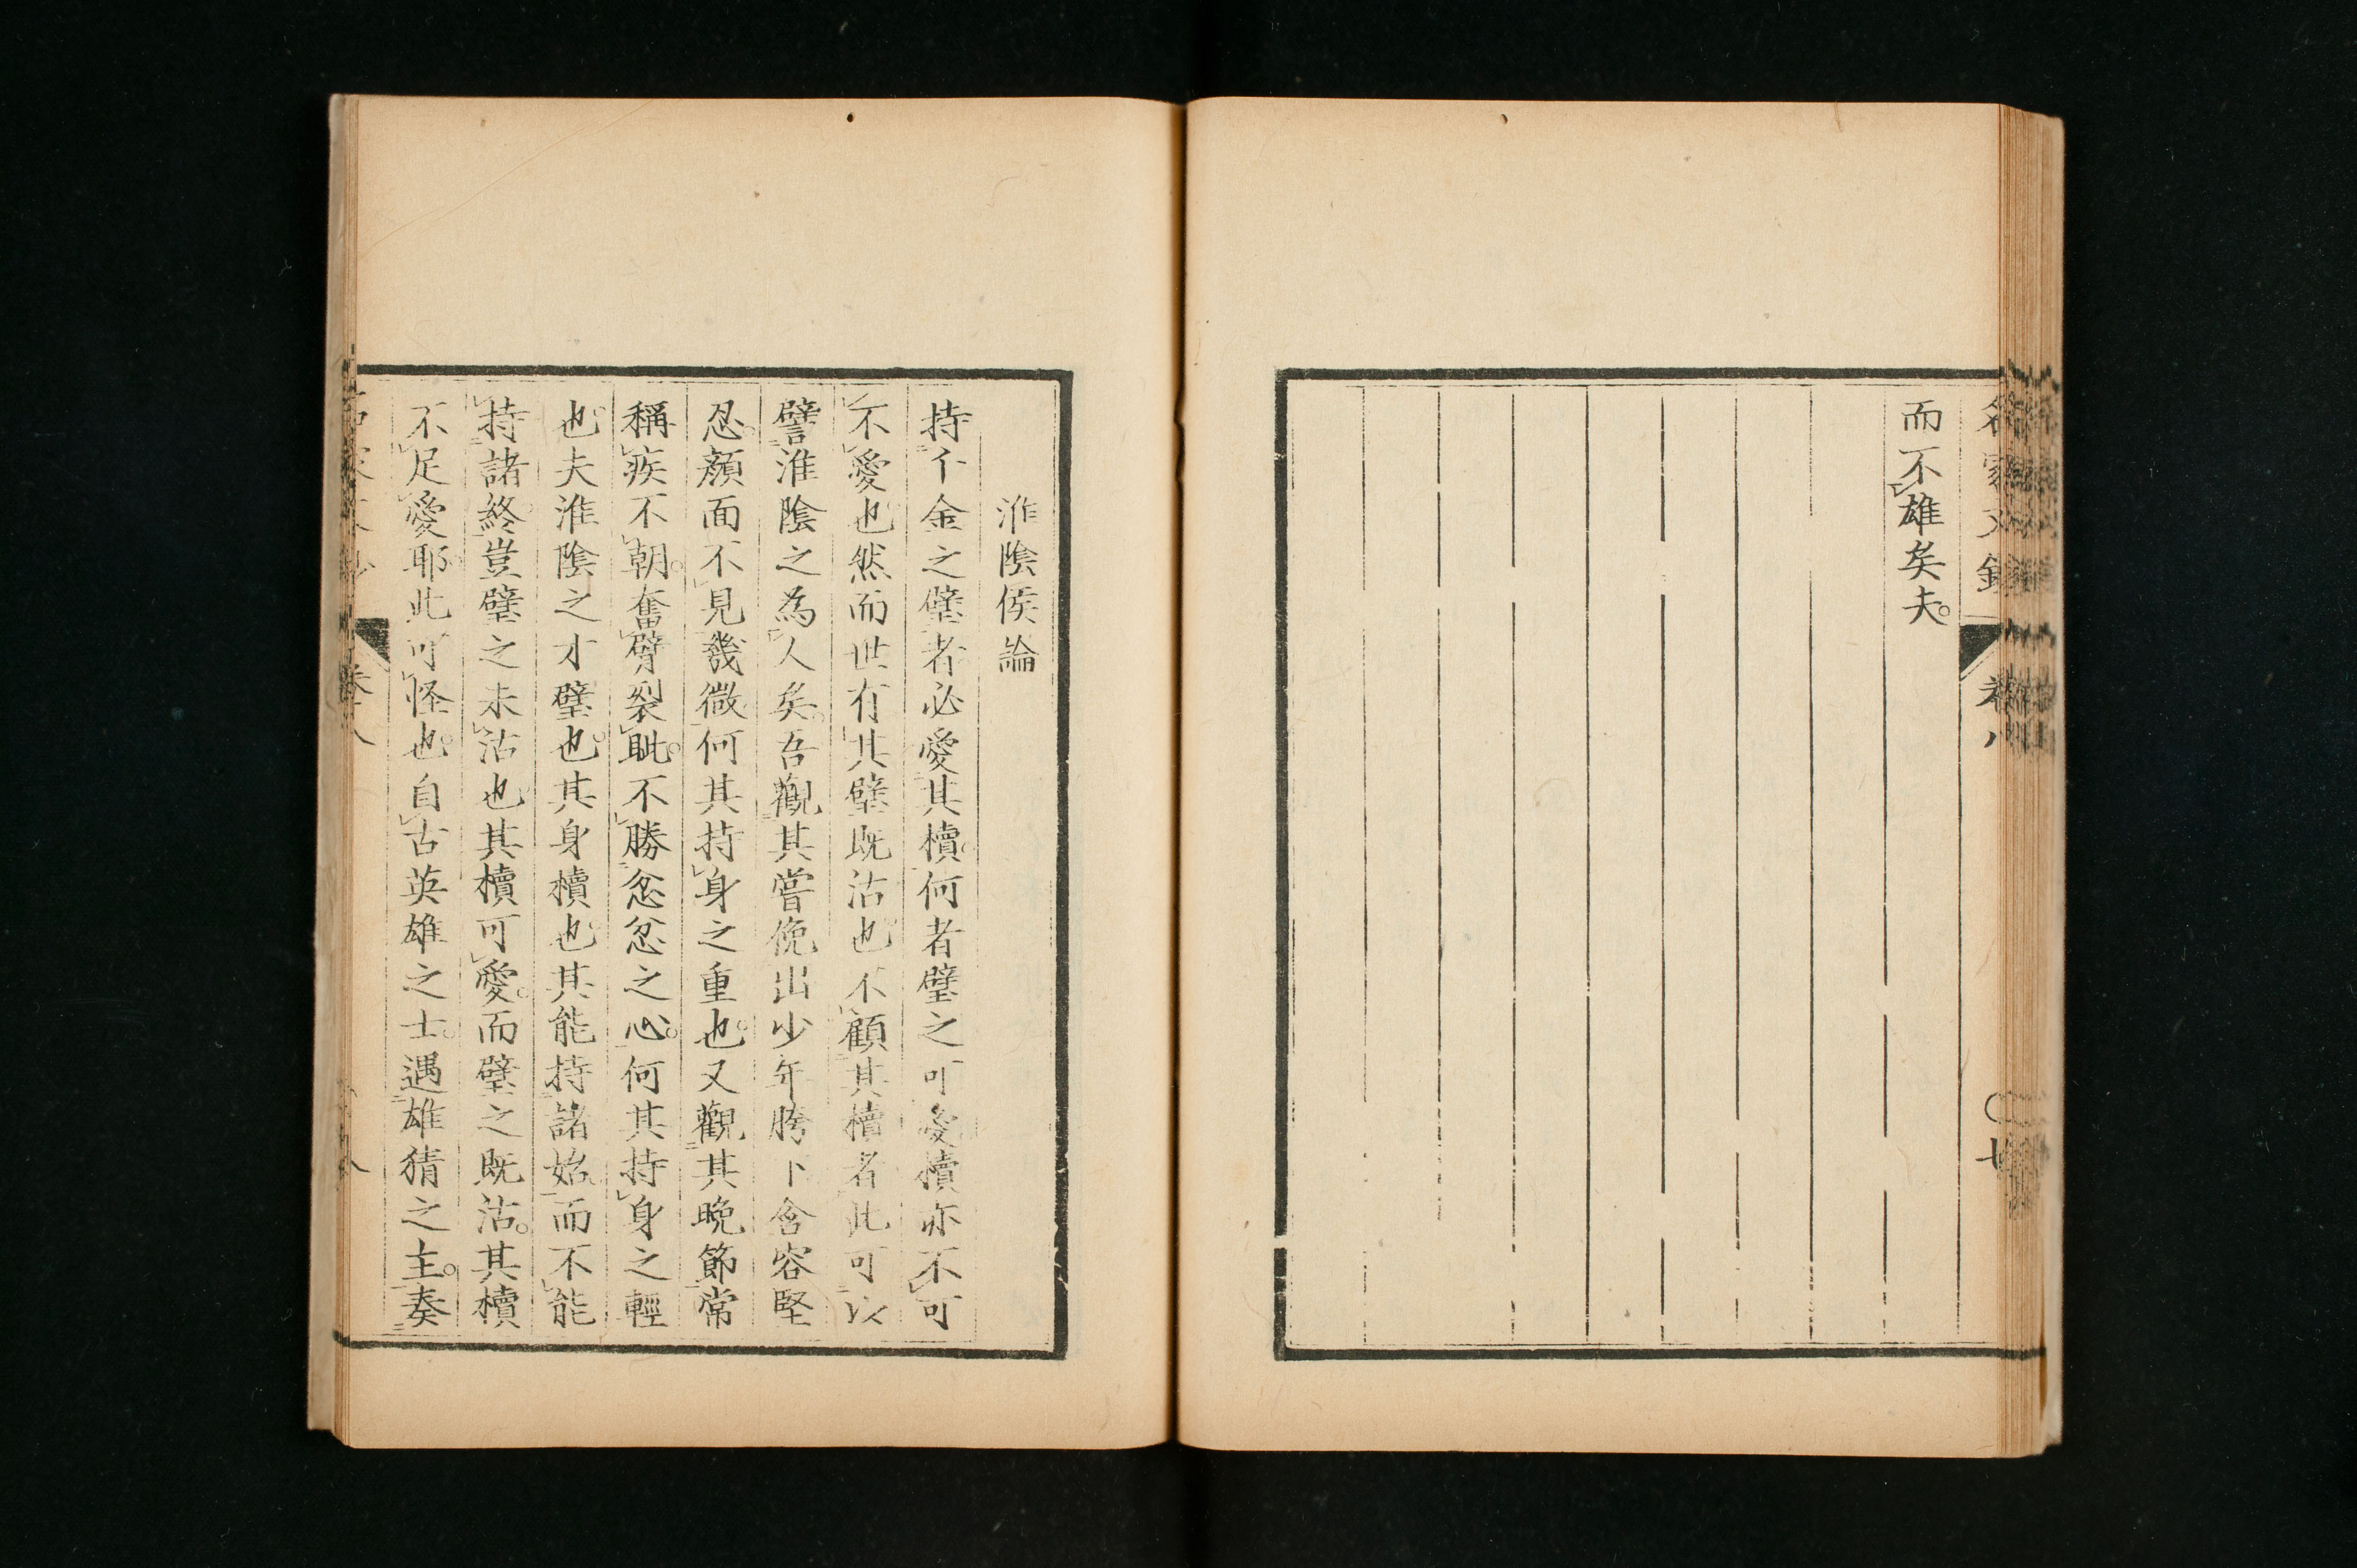 而不雄矣夫。
淮陰侯論
持千金之璧者必愛其櫝。何者璧之可愛櫝亦不可
不愛也然而世有其璧既沽也不顧其櫝者此可以
譬淮陰之為人矣。吾觀其嘗俛出少年胯下含容堅
忍。顏面不見幾微何其持身之重也。又觀其晚節常
稱疾不朝。奮臂裂眦。不勝忿忿之心。何其持身之輕
也。夫淮陰之才璧也。其身櫝也。其能持諸始。而不能
持諸終。豈璧之未沽也。其櫝可愛。而璧之既沽。其櫝
不足愛耶。此可怪也。自古英雄之士。遇雄猜之主。奏